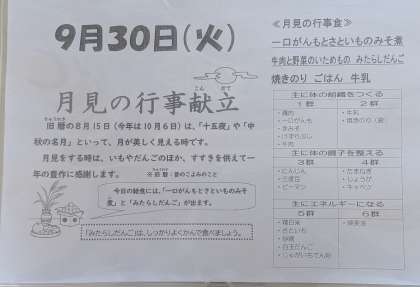 9月30日(火)
こん だて
月見の行事献立
きゅうれき
旧暦の8月15日(今年は10月6日)は、「十五夜」や「中
秋の名月」といって、月が美しく見える時です。
月見をする時は、いもやだんごのほか、すすきを供えて一
年の豊作に感謝します。
※旧暦:昔のこよみのこと
今日の給食には、「一口がんもとさといものみそ
煮」と「みたらしだんご」が出ます。
「みたらしだんご」は、しっかりよくかんで食べましょう。
≪月見の行事食≫
一口がんもとさといものみそ煮
牛肉と野菜のいためもの みたらしだんご
焼きのり ごはん 牛乳
主に体の組織をつくる
1群 2群
・鶏肉
・一口がんも
・赤みそ
・牛肉
・牛乳
・焼きのり
主に体の調子を整える
3群 4群
・にんじん
・三度豆
・ピーマン
・たまねぎ
・しょうが
・キャベツ
主にエネルギーになる
5群 6群
・精白米
・さといも
・砂糖
・白玉だんご
・じゃがいもでん粉